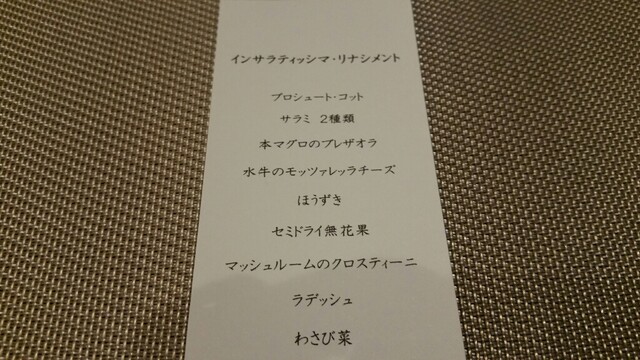 インサラティッシマ・リナシメント
プロシュート・コット
サラミ 2種類
本マグロのブレザオラ
水牛のモッツァレッラチーズ
ほうずき
セミドライ無花果
マッシュルームのクロスティーニ
ラデッシュ
わさび菜